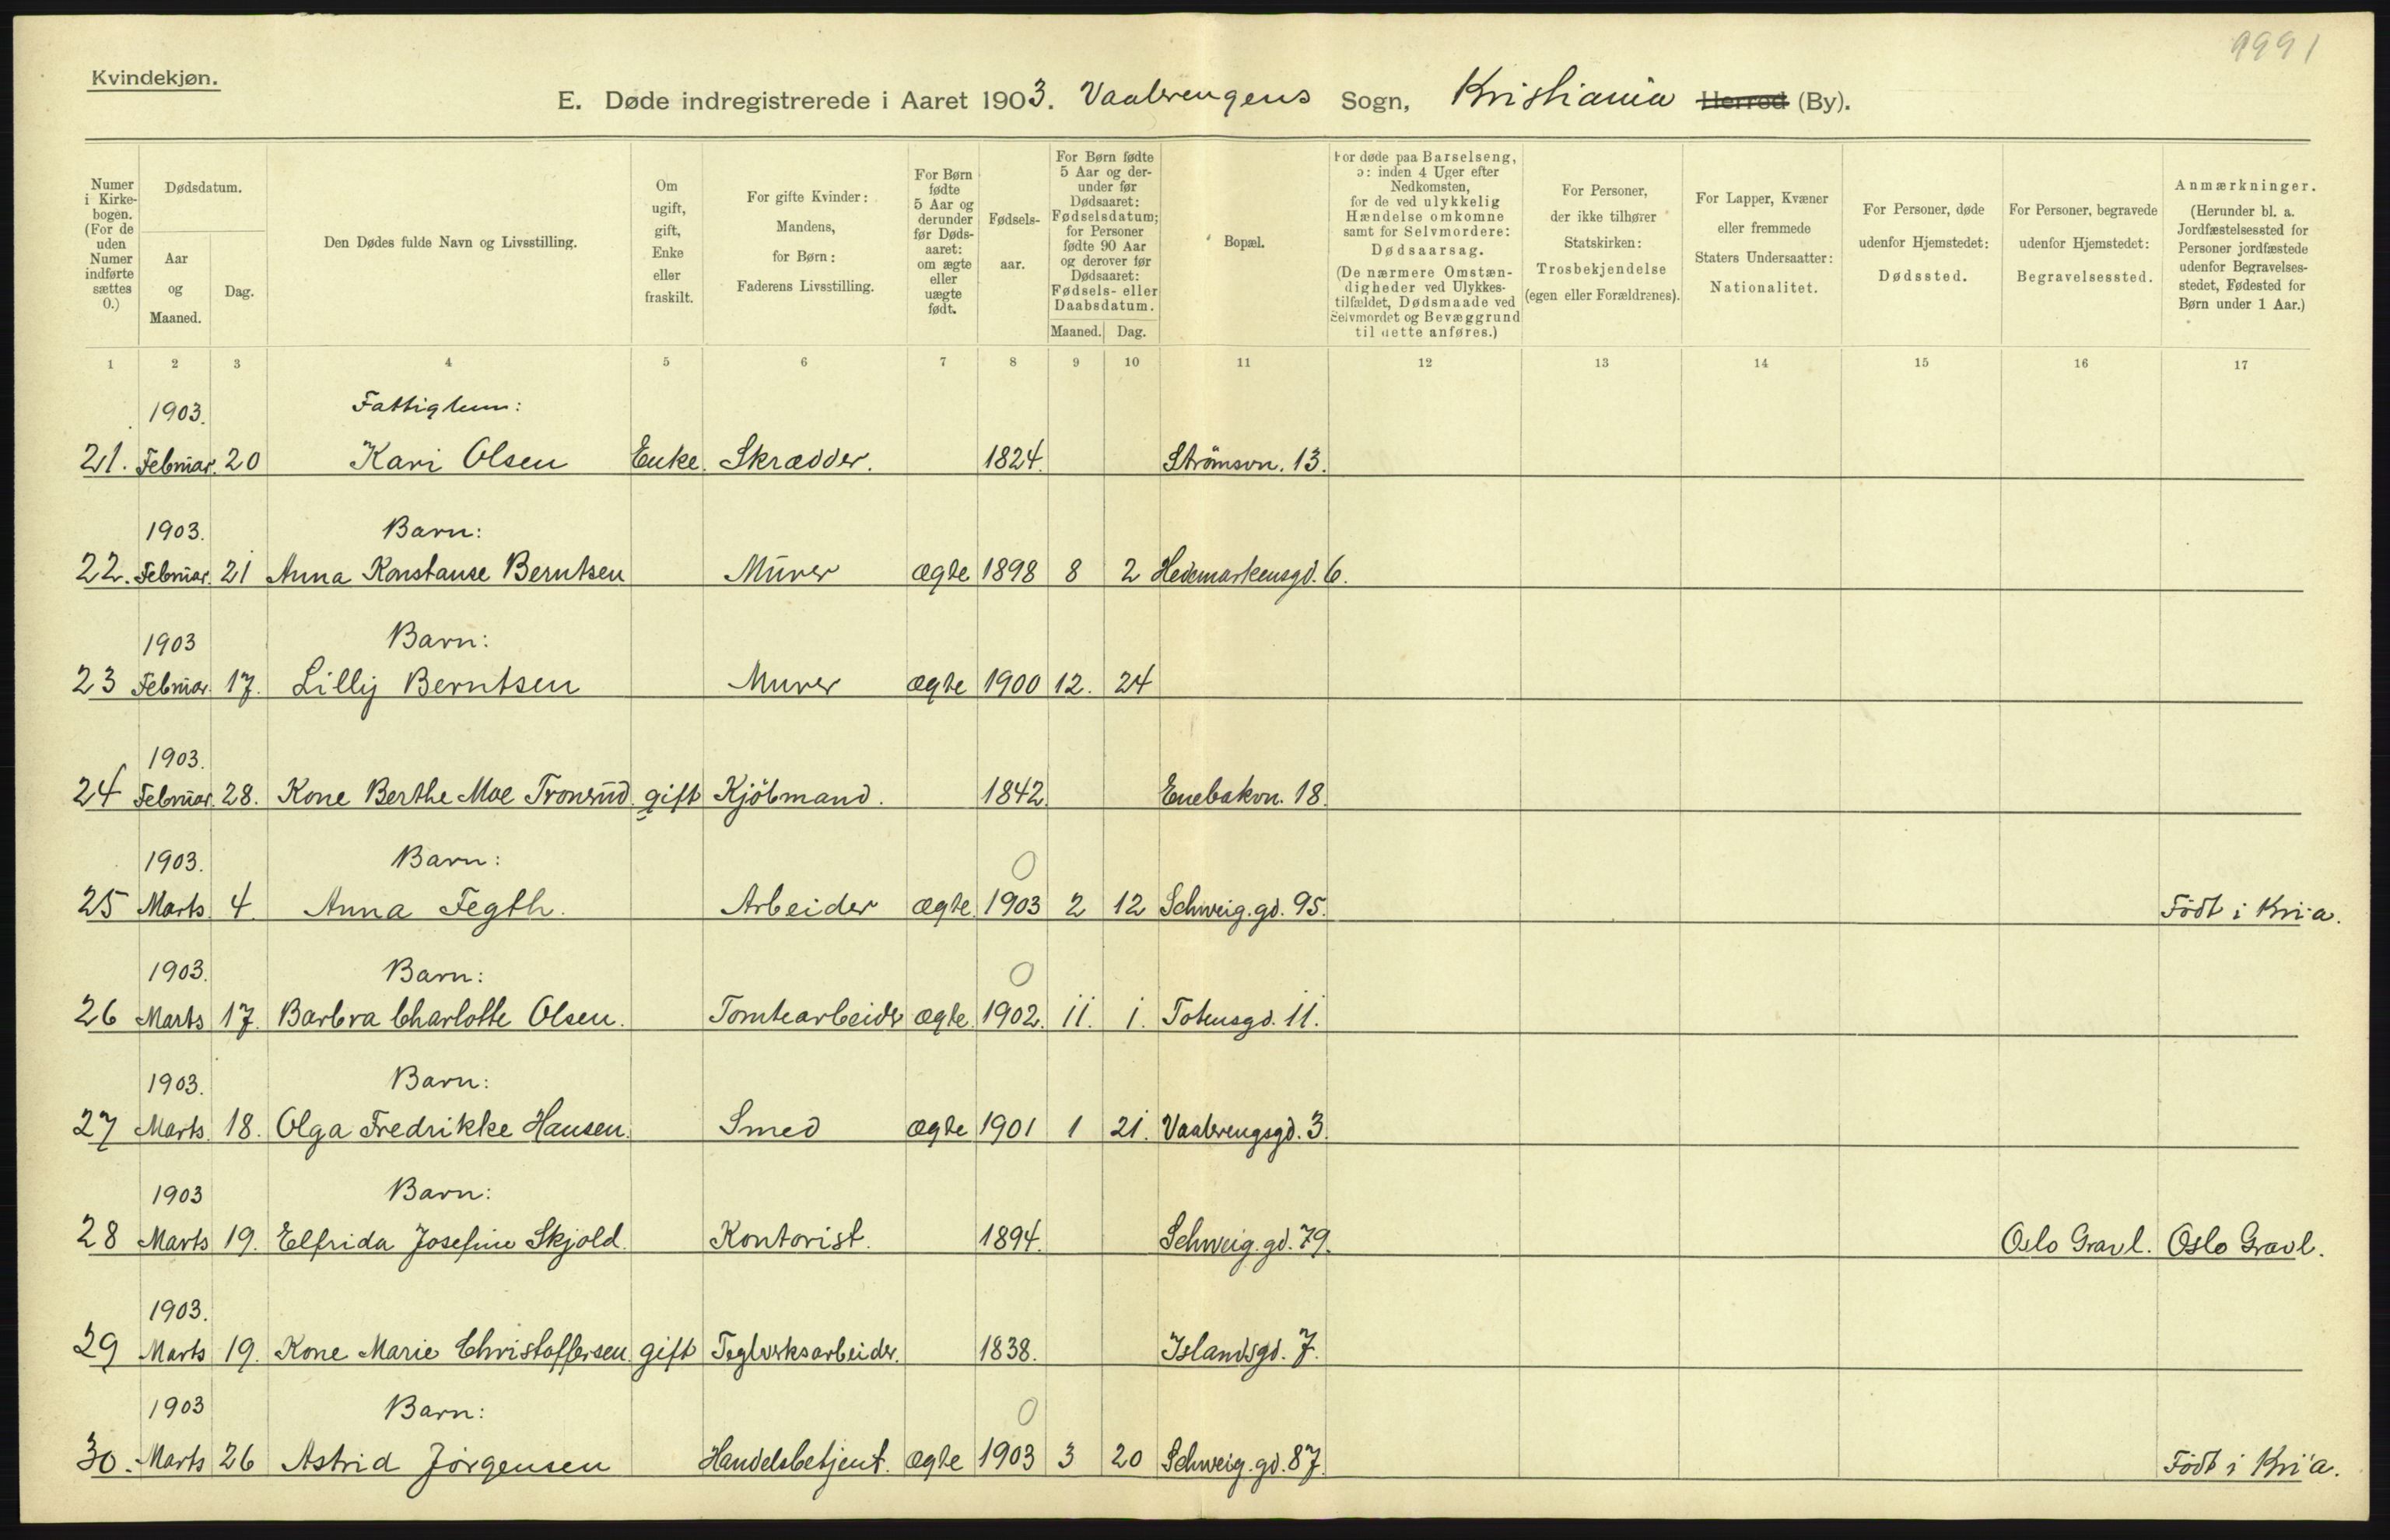 9991
Kvindekjøn.
E. Døde indregistrerede i Aaret 1903. Vaalerengens Sogn, Kristiania Herred (By).
Numer i Kirkebogen. (For de uden Numer indførte sættes 0.)
Dødsdatum.
Aar og Maaned.
Dag.
Den Dødes fulde Navn og Livsstilling.
Om ugift, gift, Enke eller fraskilt.
For gifte Kvinder: Mandens, for Børn: Faderens Livsstilling.
For Børn fødte 5 Aar og derunder før Dødsaaret: om ægte eller uægte født.
Fødselsaar.
For Børn fødte 5 Aar og derunder før Dødsaaret: Fødselsdatum; for Personer fødte 90 Aar og derover før Dødsaaret: Fødsels- eller Daabsdatum.
Maaned. Dag.
Bopæl.
For døde paa Barselseng, ɔ: inden 4 Uger efter Nedkomsten, for de ved ulykkelig Hændelse omkomne samt for Selvmordere: Dødsaarsag. (De nærmere Omstændigheder ved Ulykkestilfældet, Dødsmaade ved Selvmordet og Bevæggrund til dette anføres.)
For Personer, der ikke tilhører Statskirken: Trosbekjendelse (egen eller Forældrenes).
For Lapper, Kvæner eller fremmede Staters Undersaatter: Nationalitet.
For Personer, døde udenfor Hjemstedet: Dødssted.
For Personer, begravede udenfor Hjemstedet: Begravelsessted.
Anmærkninger. (Herunder bl. a. Jordfæstelsessted for Personer jordfæstede udenfor Begravelsesstedet, Fødested for Børn under 1 Aar.)
1 2 3 4 5 6 7 8 9 10 11 12 13 14 15 16 17
1903. Fattiglem:
21. Februar. 20 Kari Olsen Enke. Skrædder. 1824. Strömsvn. 13.
1903. Barn:
22. Februar. 21 Anna Konstanse Berntsen Murer ægte 1898 8 2 Hedemarkensgd. 6.
1903 Barn:
23 Februar. 17. Lilly Berntsen Murer ægte 1900 12. 24
1903.
24 Februar. 28. Kone Berthe Moe Tronsrud gift Kjöbmand. 1842. Enebakvn. 18.
1903. Barn: 0
25 Marts. 4. Anna Fegth. Arbeider ægte. 1903 2 12 Schweig.gd. 95. Födt i Kri:a.
1903. Barn: 0
26 Marts 17. Barbra Charlotte Olsen. Tomtearbeider ægte. 1902. 11. 1. Totensgd. 11.
1903. Barn:
27 Marts. 18. Olga Fredrikke Hansen. Smed ægte 1901 1 21. Vaalerengsgd. 3.
1903 Barn:
28 Marts 19. Elfrida Josefine Skjold. Kontorist. 1894. Schweig.gd. 79. Oslo Gravl. Oslo Gravl.
1903.
29 Marts 19. Kone Marie Christoffersen gift Teglverksarbeider. 1838. Islandsgd. 7.
1903 Barn: 0
30. Marts 26 Astrid Jörgensen Handelsbetjent. ægte 1903 3 20 Schweig.gd. 87. Födt i Kri:a.